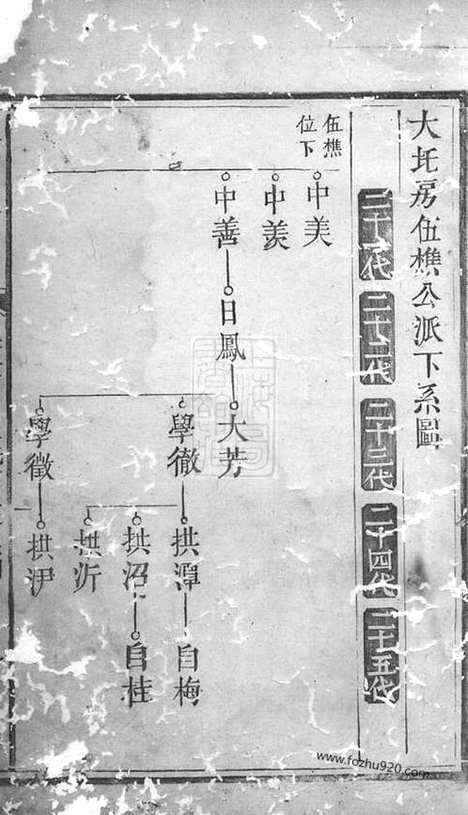 大圫房伍樵公派下系圖
二十一代
二十二代
二十三代
二十四代
二十五代
伍樵
位下
中美
中羨
中善
日鳳
大芳
學徹
拱潭
自梅
拱沼
自桂
拱沂
學徵
拱尹
www.fozhu920.com